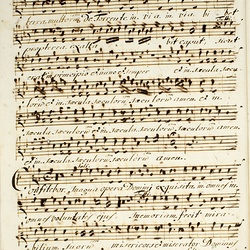 terra multorum. De torrente in via in via bi bet
propterea exalta bit caput. Sicut
erat in principio et nunc et semper et in sæcula sæcu
lorum et in sæcula sæculorum sæculorum amen. et in
sæcula sæculorum et in sæcula sæculorum sæculorum amen
et in sæcula sæculorum sæculorum amen.
Confitebor magna opera Domini exquisita in omnes
voluntates ejus. Memoriam fecit mira
bilium suorum misericors et miserator Dominus